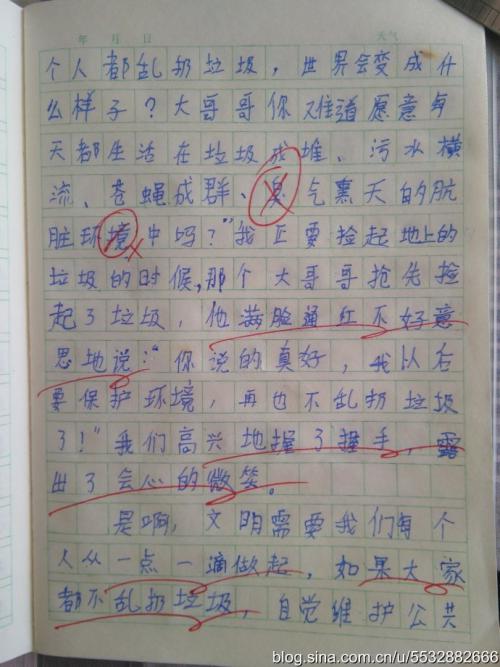 年 月 日 天气
个人都乱扔垃圾，世界会变成什
么样子？大哥哥你难道愿意每
天都生活在垃圾成堆、污水横
流、苍蝇成群、臭气熏天的肮
脏环境中吗？”我正要捡起地上的
垃圾的时候，那个大哥哥抢先捡
起了垃圾，他满脸通红不好意
思地说：“你说的真好，我以后
要保护环境，再也不乱扔垃圾
了！”我们高兴地握了握手，露
出了会心的微笑。
是啊，文明需要我们每个
人从一点一滴做起，如果大家
都不乱扔垃圾，自觉维护公共
blog.sina.com.cn/u/5532882666